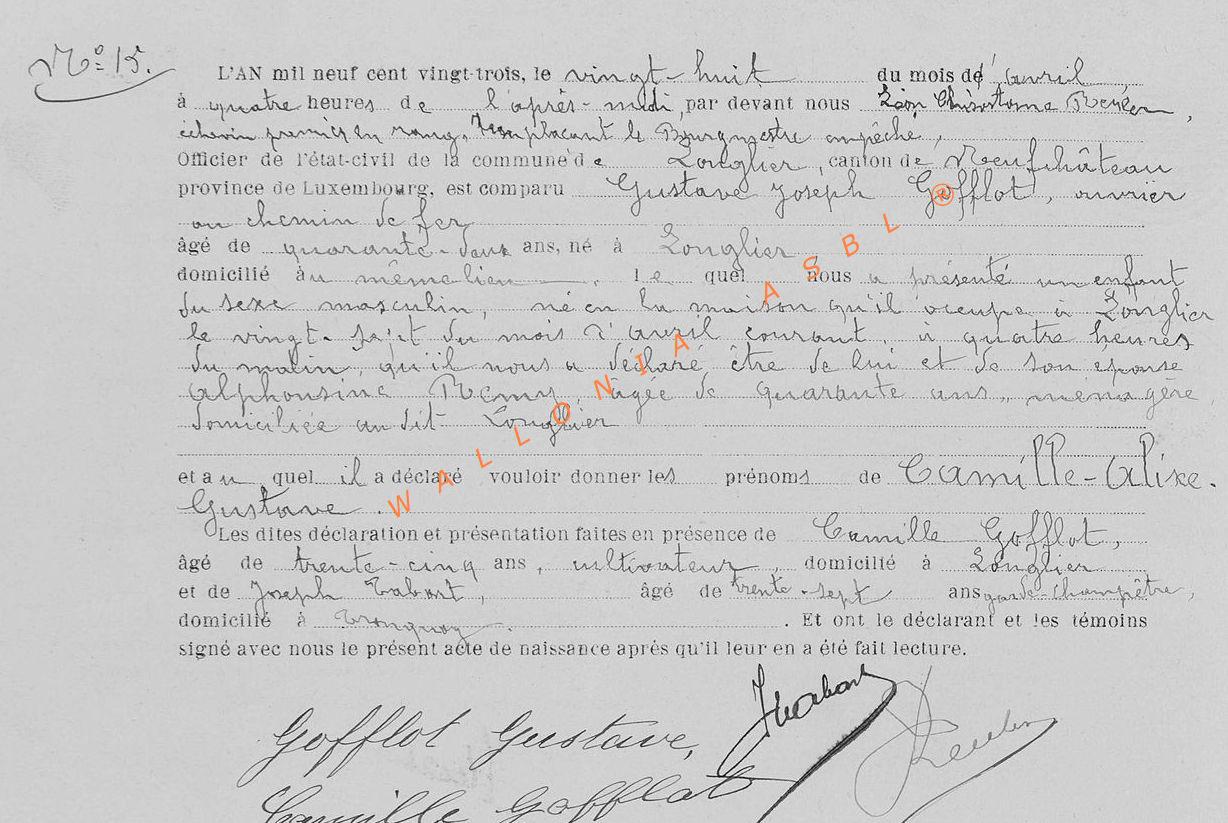 N° 15.
L'AN mil neuf cent vingt-trois, le vingt-huit du mois de avril,
à quatre heures de l'après-midi, par devant nous Léon Chrisostome,
échevin premier en rang, remplaçant le Bourgmestre empêché,
Officier de l'état-civil de la commune de Longlier, canton de Neufchâteau
province de Luxembourg, est comparu Gustave Joseph Gofflot, ouvrier
au chemin de fer
âgé de quarante-deux ans, né à Longlier
domicilié au même lieu, le quel nous a présenté un enfant
du sexe masculin, né en la maison qu'il occupe à Longlier
le vingt-sept du mois d'avril courant, à quatre heures
du matin, qu'il nous a déclaré être de lui et de son épouse
Alphonsine Remy, âgée de quarante ans, ménagère,
domiciliée au dit Longlier
et au quel il a déclaré vouloir donner les prénoms de Camille-Alixe.
Gustave.
Les dites déclaration et présentation faites en présence de Camille Gofflot,
âgé de trente-cinq ans, cultivateur, domicilié à Longlier
et de Joseph Habart, âgé de trente-sept ans garde-champêtre,
domicilié à Tronquoy. Et ont le déclarant et les témoins
signé avec nous le présent acte de naissance après qu'il leur en a été fait lecture.
JHabart
Gofflot Gustave,
Camille Gofflot
WALLONIA ASBL ®